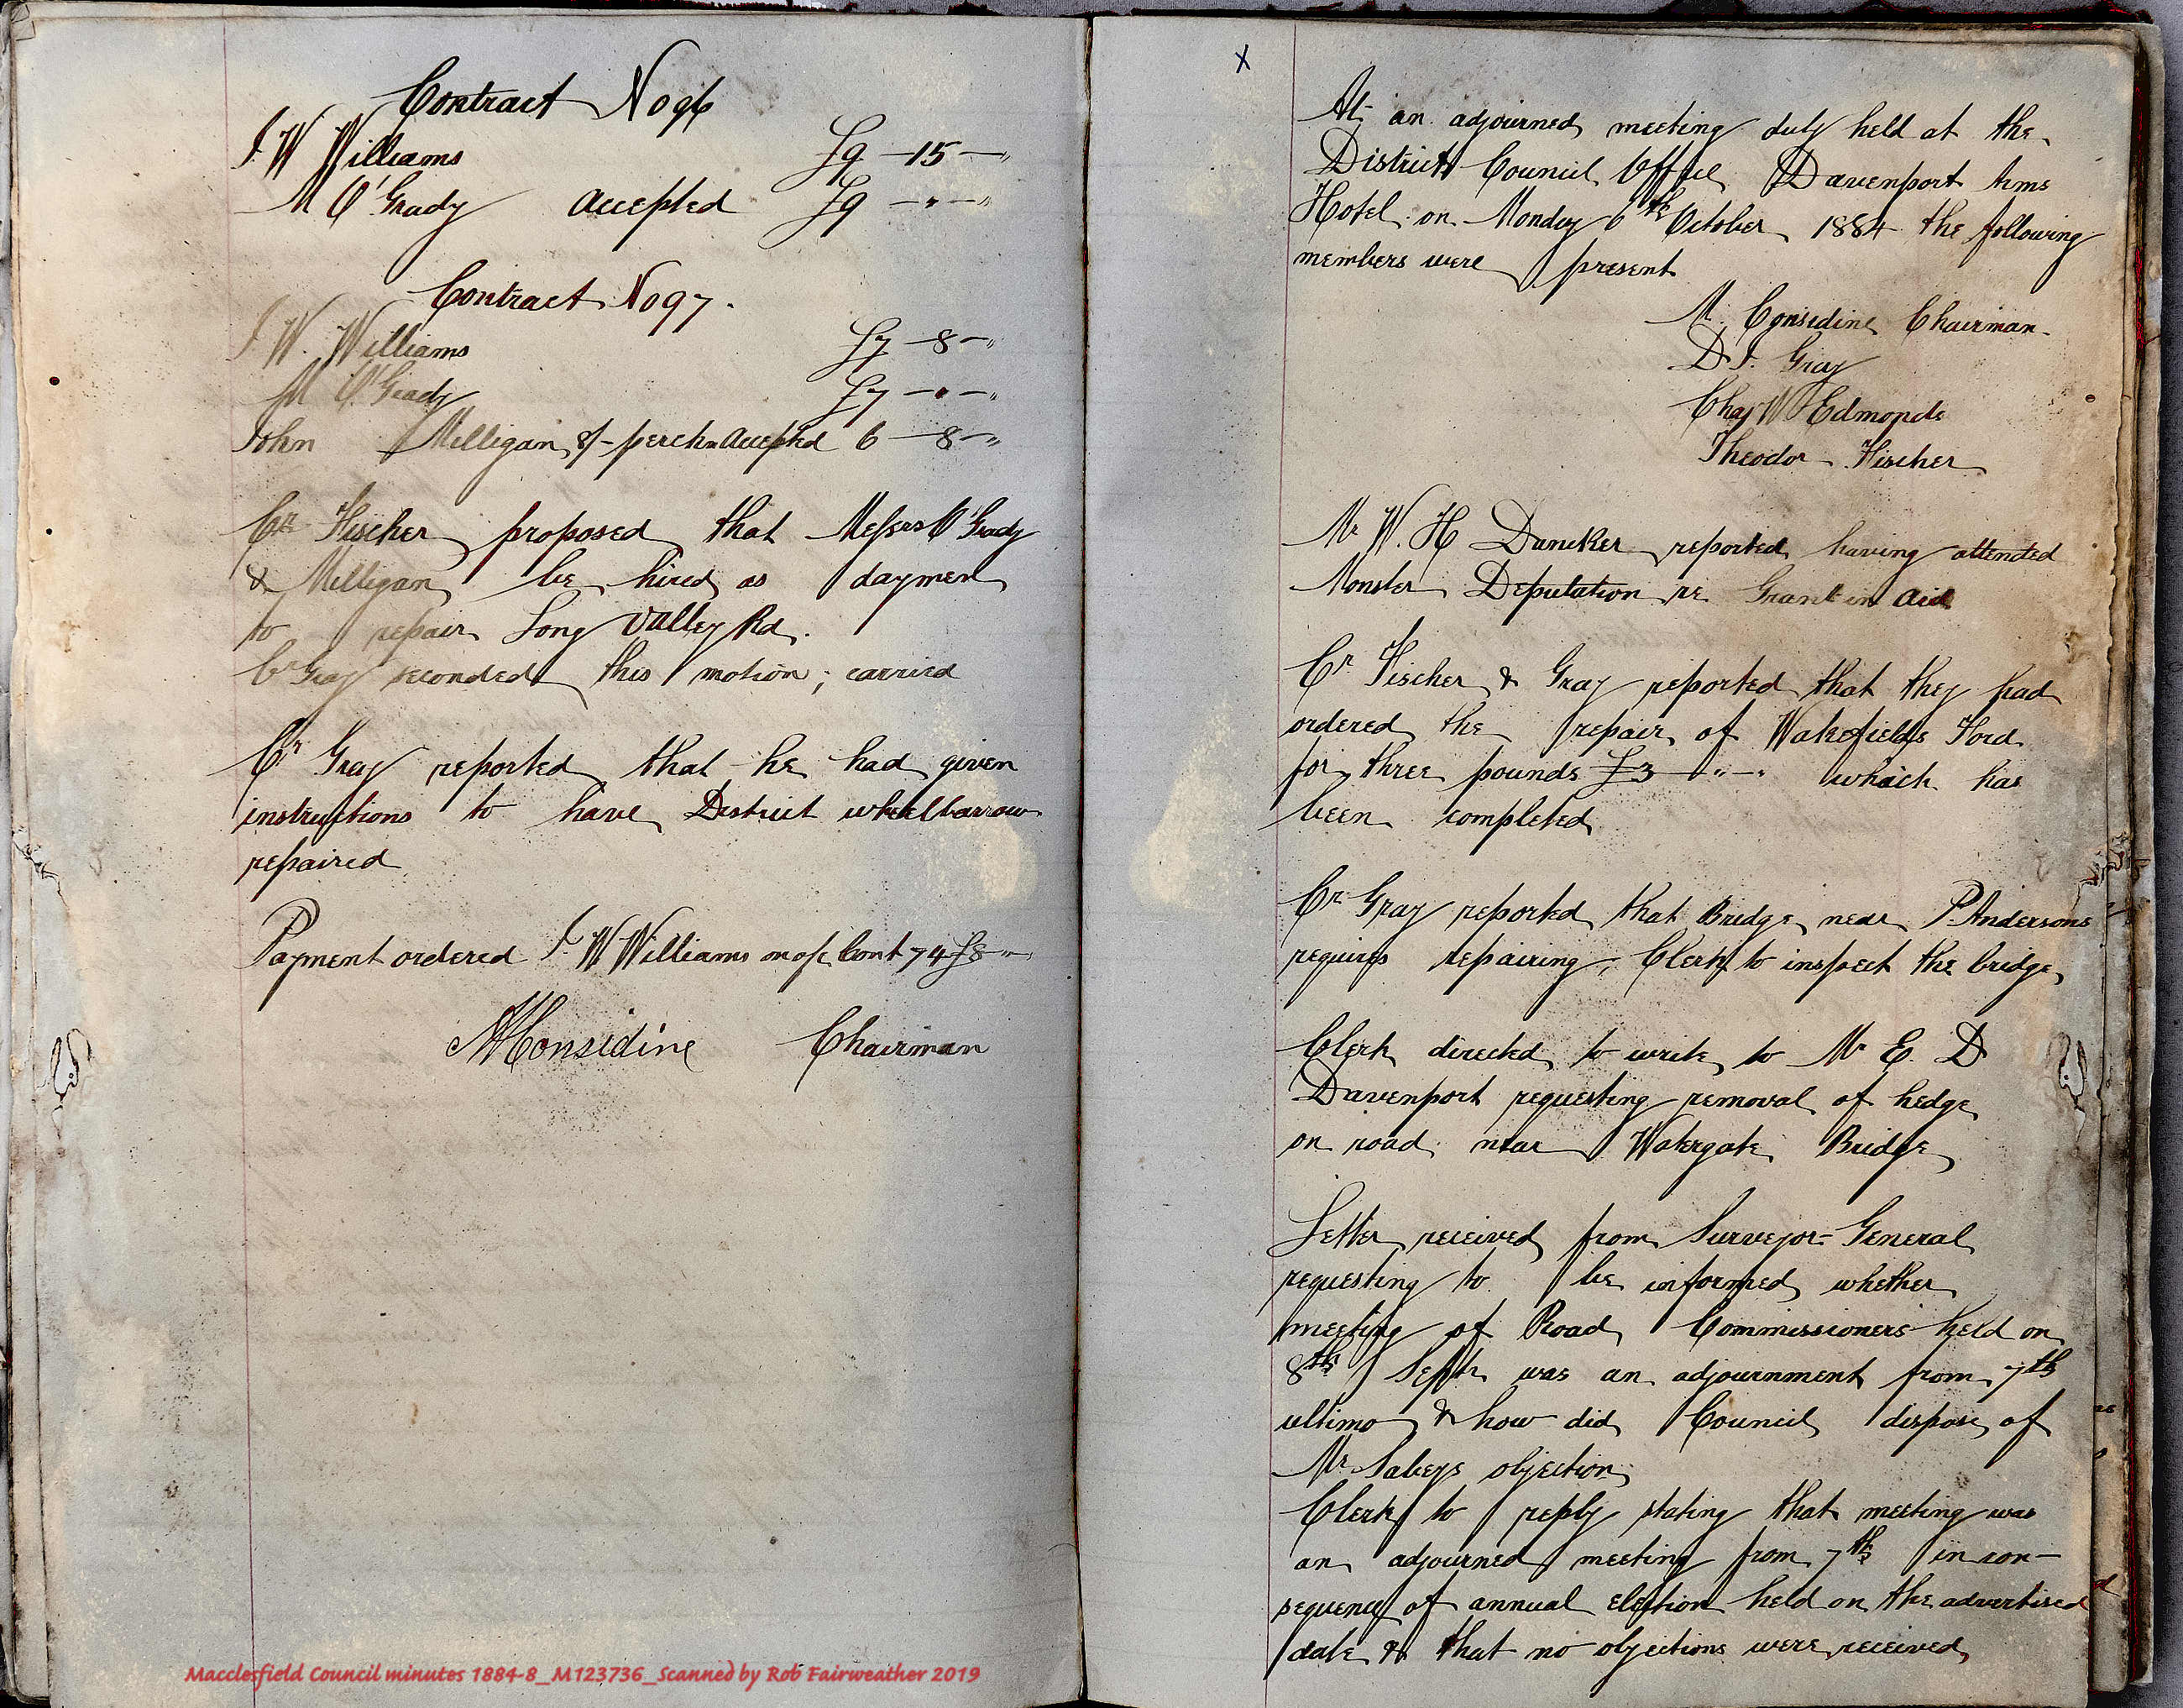 Contract No 96
J. W Williams £9 - 15 - "
M O'Grady accepted £9 - " - "
Contract No 97.
J. W. Williams £7 - 8 - "
M O'Grady £7 - " - "
John Milligan 8/- perch accepted 6 - 8 - "
Cr Fischer proposed that Messrs O'Grady
& Milligan be hired as daymen
to repair Long Valley Rd.
Cr Gray seconded this motion; carried
Cr Gray reported that he had given
instructions to have District wheelbarrow
repaired
Payment ordered J. W Williams on a/c Cont 74 £8 - " - "
M Considine Chairman
Macclesfield Council minutes 1884-8_M123736_Scanned by Rob Fairweather 2019
X
At an adjourned meeting duly held at the
District Council Office Davenport Arms
Hotel on Monday 6th October 1884 the following
members were present
M. Considine Chairman
D. J. Gray
Chas W Edmonds
Theodor Fischer
Mr W. H Dancker reported having attended
Monster Deputation re Grant in aid
Cr Fischer & Gray reported that they had
ordered the repair of Wakefields Ford
for three pounds £3 - " - " which has
been completed
Cr Gray reported that Bridge near P. Andersons
requires repairing, Clerk to inspect the bridge
Clerk directed to write to Mr E. D
Davenport requesting removal of hedge
on road near Watergate Bridge
Letter received from Surveyor-General
requesting to be informed whether
meeting of Road Commissioners held on
8th Septr was an adjournment from 7th
ultimo & how did Council dispose of
Mr Sabeys objection
Clerk to reply stating that meeting was
an adjourned meeting from 7th in con-
sequence of annual election held on the advertised
date & that no objections were received